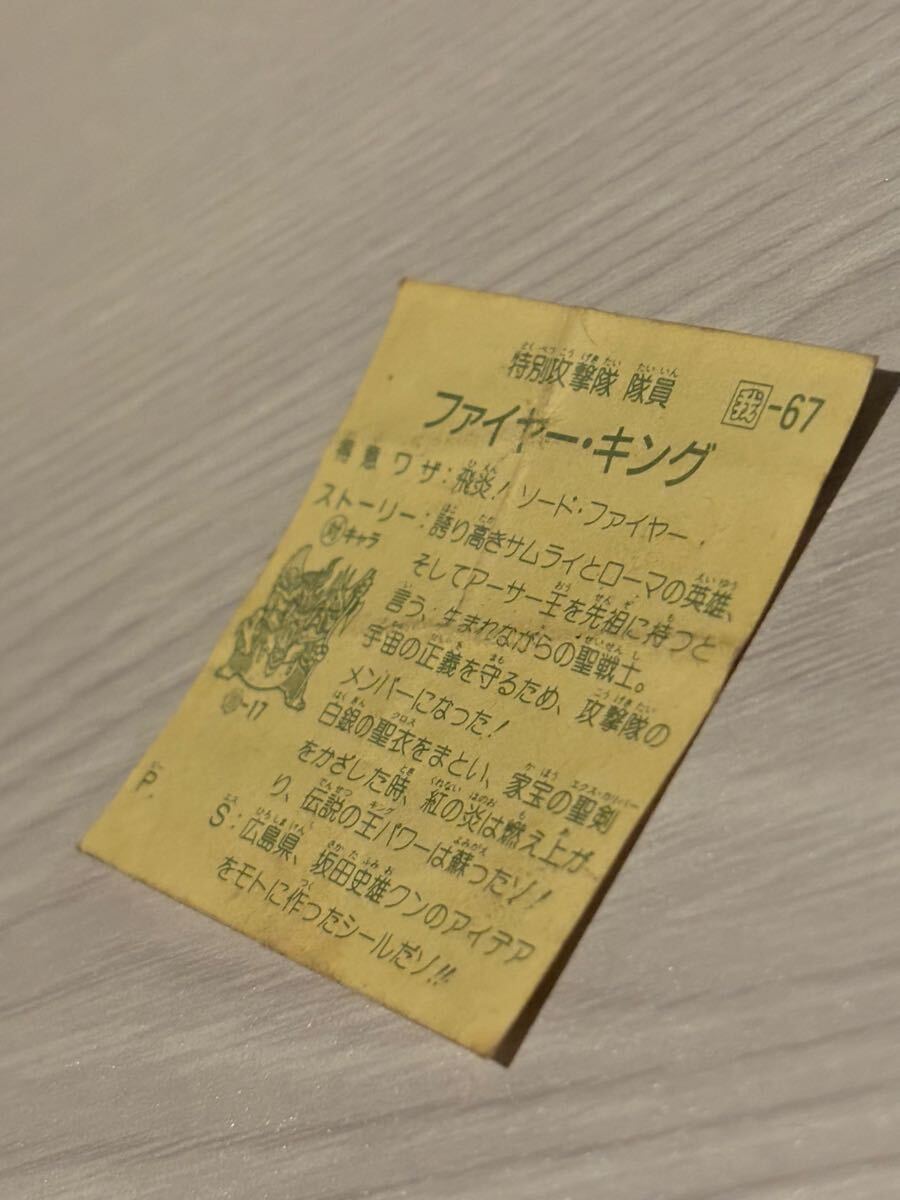 特別攻撃隊 隊員
-67
ファイヤー・キング
得意ワザ:飛炎!ソード・ファイヤー
ストーリー:誇り高きサムライとローマの英雄、
そしてアーサー王を先祖に持つと
言う、生まれながらの聖戦士。
宇宙の正義を守るため、攻撃隊の
メンバーになった!
白銀の聖衣をまとい、家宝の聖剣
をかざした時、紅の炎は燃え上が
り、伝説の王パワーは蘇ったゾ!
P.S:広島県、坂田史雄クンのアイデア
をモトに作ったシールだゾ!!
対キャラ
-17